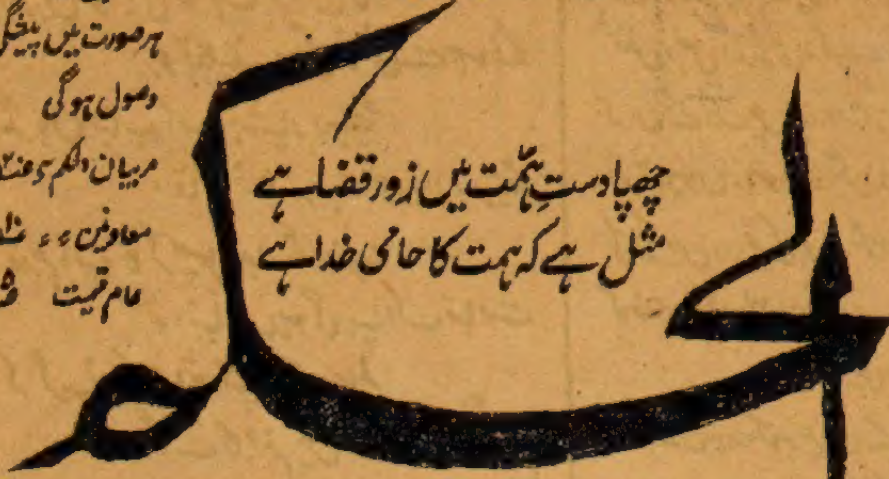 ہر صورت میں پیشگی
وصول ہوگی
مربیان الحکم سے
معاونین
عام قیمت
چھپا دستِ ہمّت میں زور قضا ہے
مثل ہے کہ ہمت کا حامی خدا ہے
الحکم